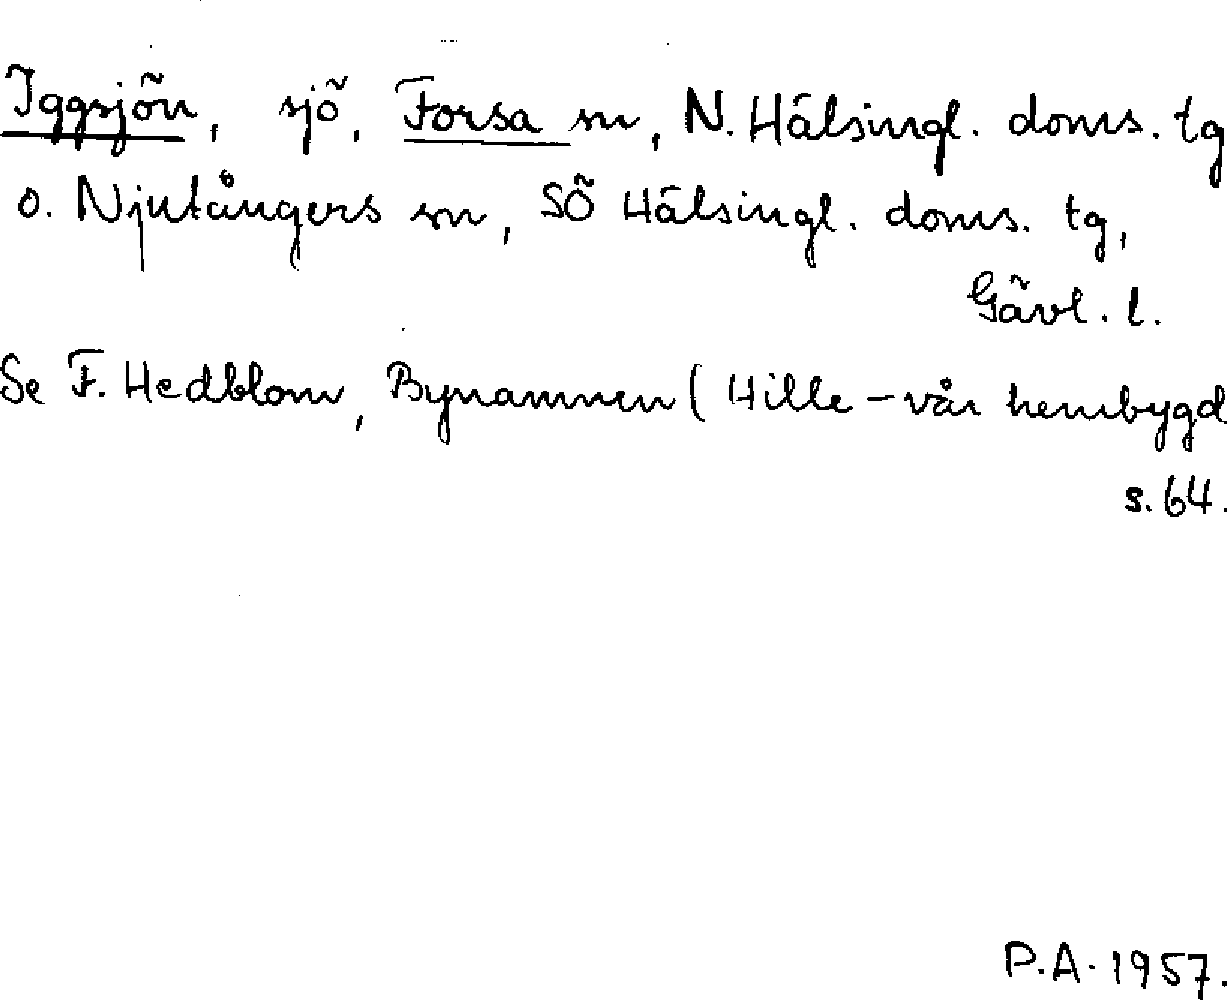 Iggsjön, sjö, Forsa sn, N. Hälsingl. doms. tg
o. Njutångers sn, SÖ Hälsingl. doms. tg,
Gävl. l.
Se F. Hedblom, Bynamnen (Hille - vår hembygd
s. 64.
P.A. 1957.